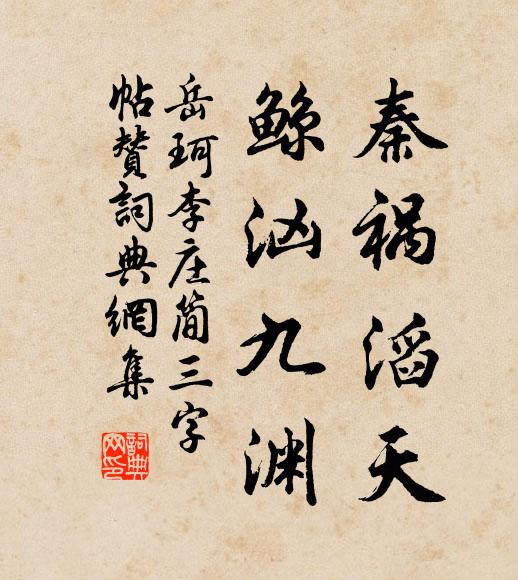 秦祸滔天
鲸汹九渊
岳珂李庄简三字
帖赞詞典網集
詞典网印